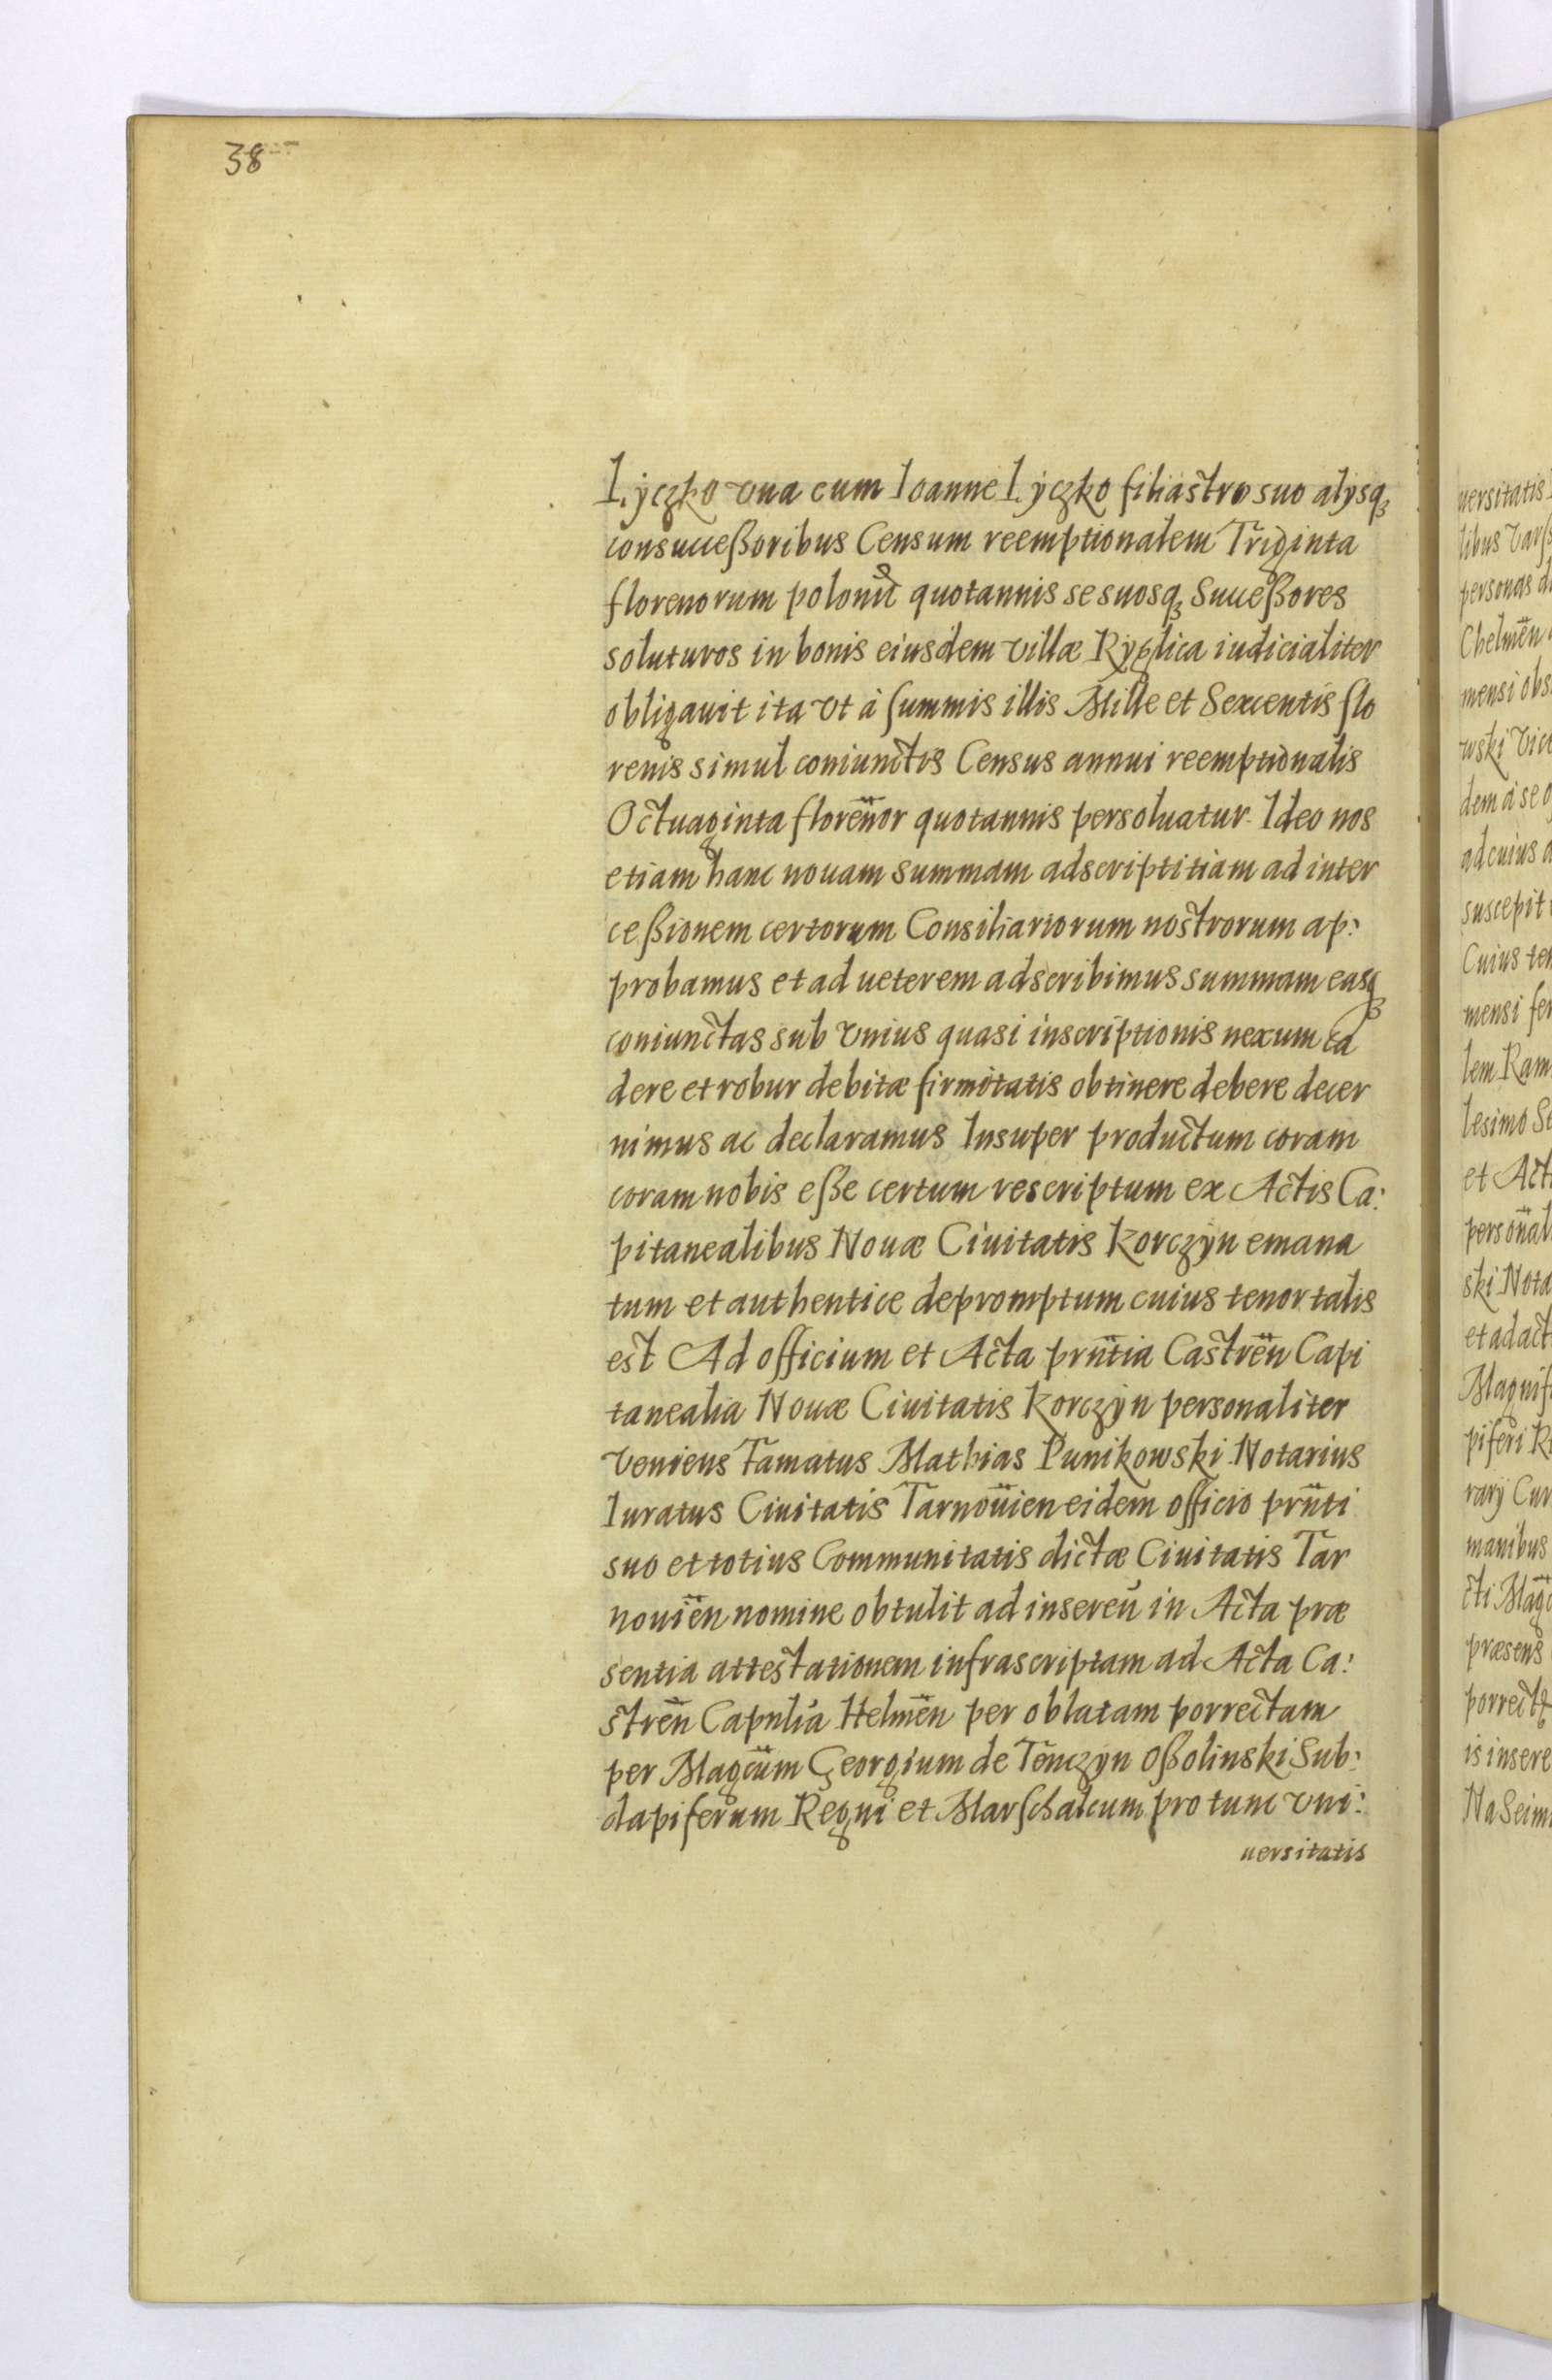 38
Lyczko vna cum Ioanne Lyczko filiastro suo alysq3
consuccessoribus Censum reemptionalem Triginta
florenorum polonic̃ quotannis se suosq3 Successores
soluturos in bonis eiusdem villæ Ryglica iudicialiter
obligauit ita vt à summis illis Mille et Sexcentis flo
renis simul coniunctis Census annui reemptionalis
Octuaginta floren̄or quotannis persoluatur. Ideo nos
etiam hanc nouam summam adscriptitiam ad inter
cessionem certorum Consiliariorum nostrorum ap:
probamus et ad ueterem adscribimus summam easq3
coniunctas sub vnius quasi inscriptionis nexum ca
dere et robur debitæ firmitatis obtinere debere decer
nimus ac declaramus Insuper productum coram
coram nobis esse certum rescriptum ex Actis Ca:
pitanealibus Nouæ Ciuitatis Korczyn emana
tum et authentice depromptum cuius tenor talis
est Ad officium et Acta prn̄tia Castren̄ Capi
tanealia Nouæ Ciuitatis Korczyn personaliter
veniens Famatus Mathias Punikowski Notarius
Iuratus Ciuitatis Tarnoūien eidem officio prn̄ti
suo et totius Communitatis dictæ Ciuitatis Tar
nouien̄ nomine obtulit ad insereñ in Acta præ
sentia attestationem infrascriptam ad Acta Ca:
stren̄ Capnlia Helmen̄ per oblatam porrectam
per Magcūm Georgium de Tenczyn Ossolinski Sub:
dapiferum Regni et Marschalcum pro tunc vni:
uersitatis
uersitatis
libus
personas
Chelmen̄
mensi obs
wski Vice
dem a se
ad cuius
suscepit
Cuius ten
mensi fer
lem Ram
lesimo Se
et Act
person̄al
ski Nota
et ad act
Magnif
piferi R
rarÿ Cur
manibus
cti Mag
præsens
porrect
is insere
Na Seim